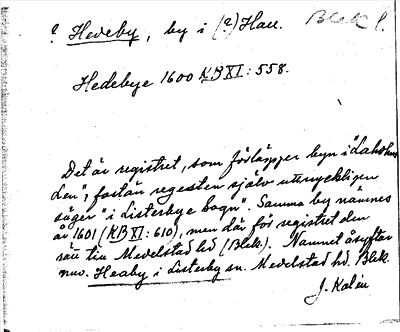 ? Hedeby, by i (?) Hall. Blek l.
Hedebye 1600 KB XI: 558.
Det är registret, som förlägger byn i "Laholms
len", fastän regesten själv uttryckligen
säger "i Listerbye sogn". Samma by nämnes
år 1601 (KB XI: 610), men där för registret den
rätt till Medelstad hd (Blek.). Namnet åsyftar
nuv. Heaby i Listerby sn. Medelstad hd. Blek.
J. Kalén